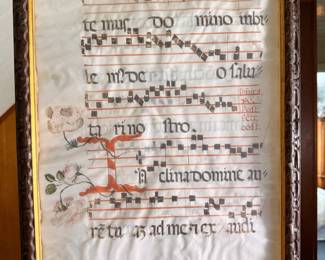 te mus do mino iubi-
le m9 de o salu-
ta ri no stro.
Inclina domine au-
rē tuā ad me et exaudi